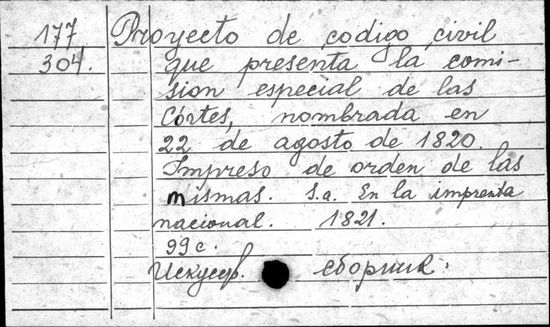 177 Proyecto de codigo civil
304. que presenta la comi-
sion especial de las
Córtes, nombrada en
22 de agosto de 1820.
Impreso de orden de las
mismas. S.a. En la imprenta
nacional. 1821.
99 с.
сборник.